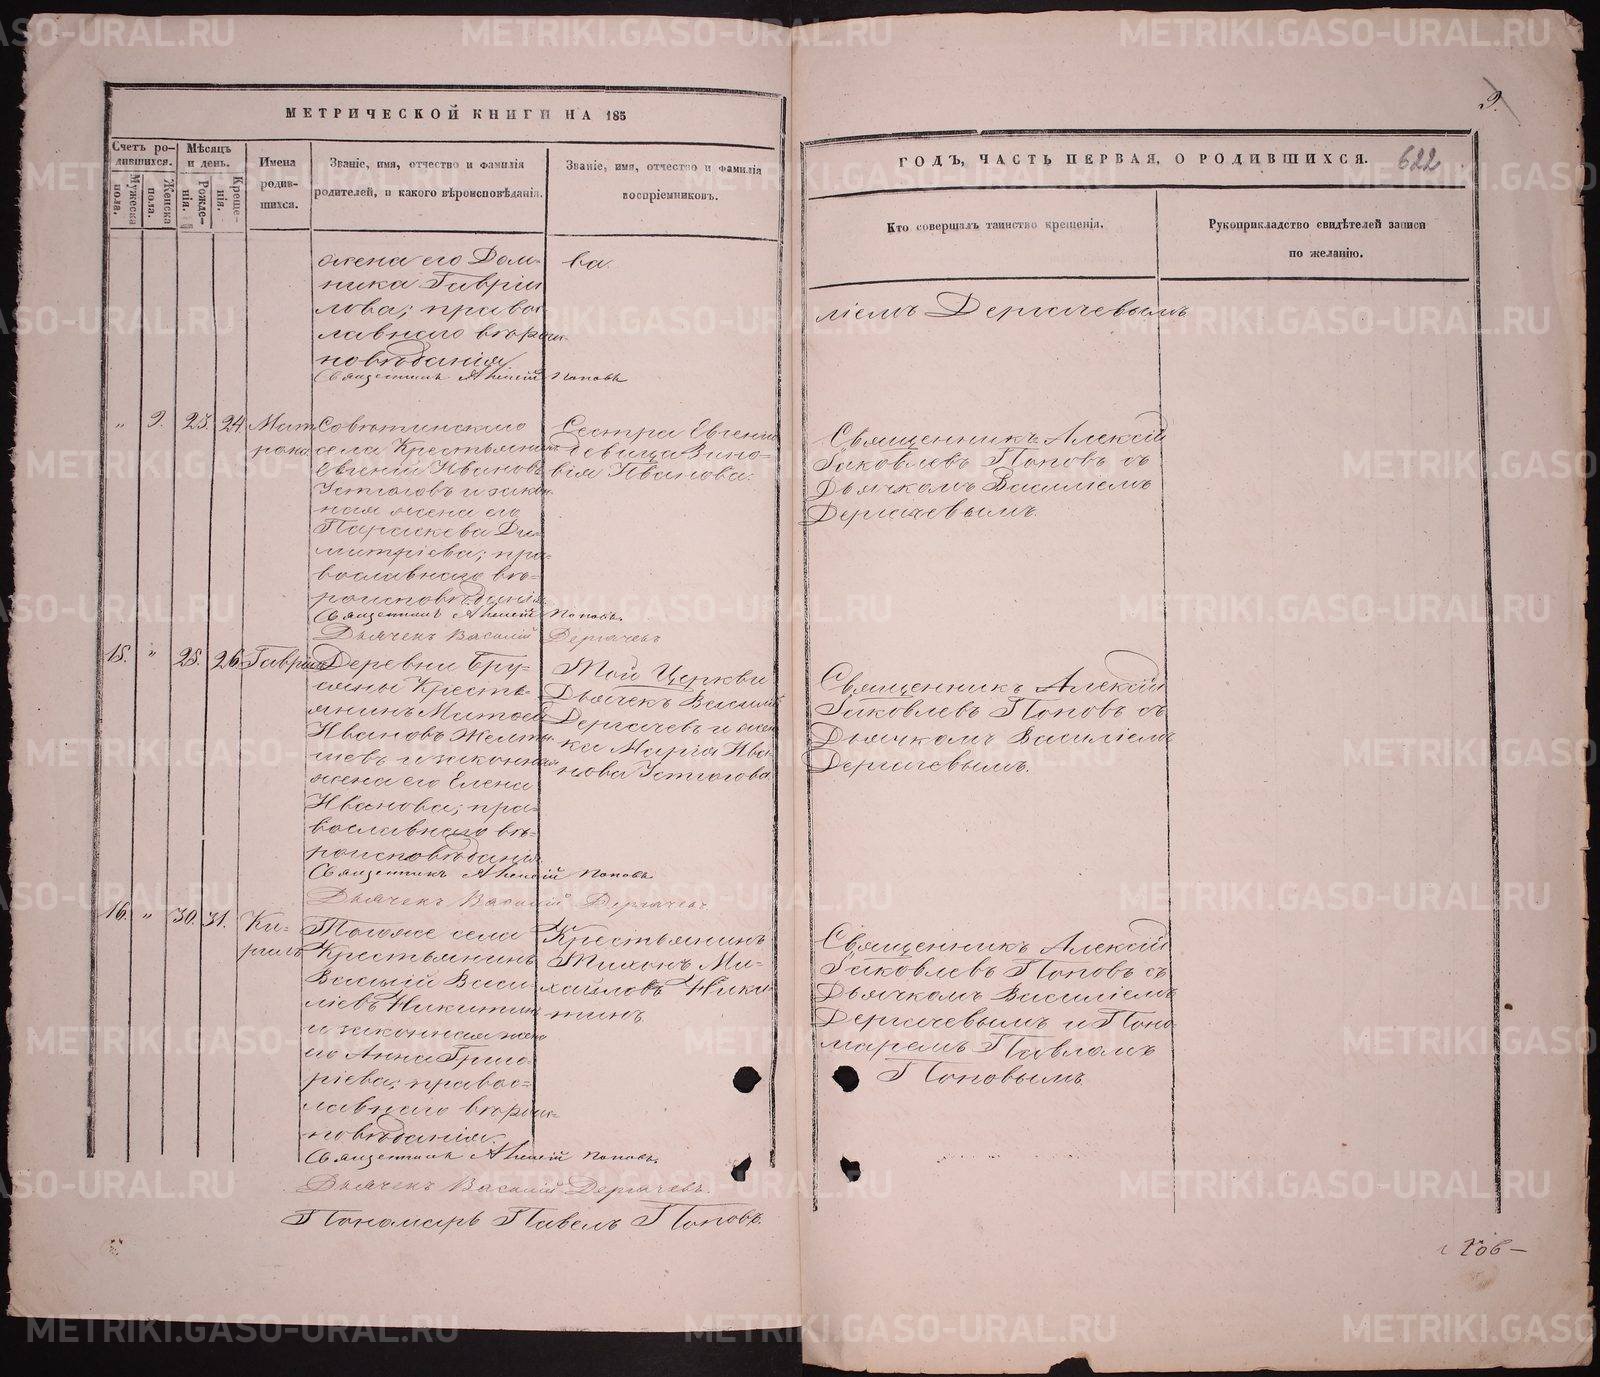 МЕТРИЧЕСКОЙ КНИГИ НА 185
Счетъ ро-
дившихся.
Мужеска
пола.
Женска
пола.
Мѣсяцъ
и день.
Рожде-
нія.
Креще-
нія.
Имена
родив-
шихся.
Званіе, имя, отчество и фамилія
родителей, и какого вѣроисповѣданія.
Званіе, имя, отчество и фамилія
воспріемниковъ.
жена его Дом-
ника Гаврiи
лова; правос
лавнаго вѣроис-
повѣданія
Священникъ Алексій Поповъ
ва.
" 9. 23. 24. Мат
рона
Совѣтинскаго
села Крестьянинъ
Евгеній Ивановъ
Устюговъ и закон
ная жена его
Параскева Ди-
митріева; пра-
вославнаго вѣ-
роисповѣданія
Священникъ Алексій Поповъ.
Дьячекъ Василій Дергачевъ
Сестра Евгенія
девица Зино-
вія Иванова.
15. " 25. 26. Гаврiилъ
Деревни Бру-
сяны Кресть-
янинъ Матвей
Ивановъ Желты
шевъ и законная
жена его Елена
Иванова; пра-
вославнаго вѣ-
роисповѣданія
Священникъ Алексій Поповъ
Дьячекъ Василій Дергачевъ
Той Церкви
Дьячекъ Василій
Дергачевъ и жен
ка Марія Ива
нова Устюгова
16. " 30. 31. Ки-
рилъ
Тогоже села
Крестьянинъ
Василій Васи
ліевъ Никитинъ
и законная жена
его Анна Григо-
ріева; правос-
лавнаго вѣроис-
повѣданія.
Священникъ Алексій Поповъ.
Дьячекъ Василій Дергачевъ.
Пономарь Павелъ Поповъ.
Крестьянинъ
Тихонъ Ми-
хайловъ Ники
тинъ.
9.
ГОДЪ, ЧАСТЬ ПЕРВАЯ, О РОДИВШИХСЯ. 622
Кто совершалъ таинство крещенія.
Рукоприкладство свидѣтелей записи
по желанію.
ліемъ Дергачевымъ
Священникъ Алексій
Іаковлевъ Поповъ съ
Дьячкомъ Василіемъ
Дергачевымъ
Священникъ Алексій
Іаковлевъ Поповъ съ
Дьячкомъ Василіемъ
Дергачевымъ.
Священникъ Алексій
Іаковлевъ Поповъ съ
Дьячкомъ Василіемъ
Дергачевымъ и Поно
маремъ Павломъ
Поповымъ
METRIKI.GASO-URAL.RU